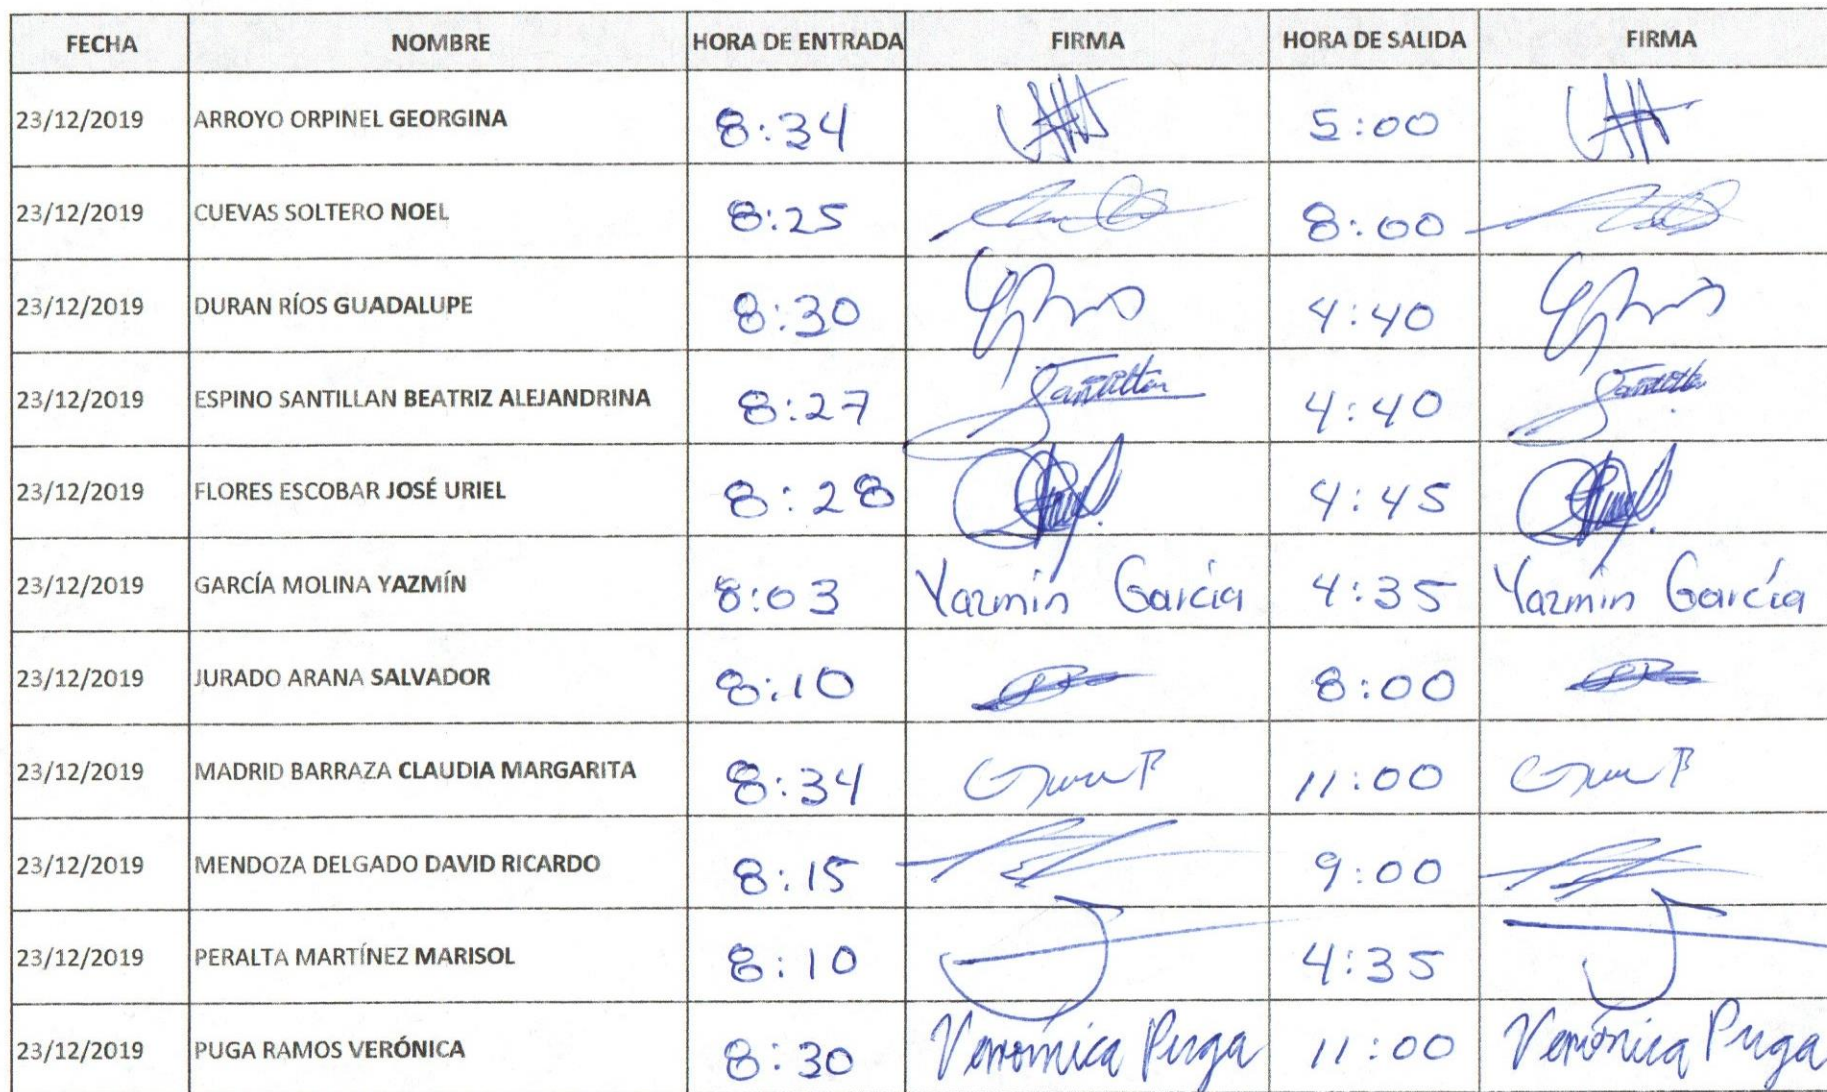 FECHA NOMBRE HORA DE ENTRADA FIRMA HORA DE SALIDA FIRMA
23/12/2019 ARROYO ORPINEL GEORGINA 8:34 5:00
23/12/2019 CUEVAS SOLTERO NOEL 8:25 8:00
23/12/2019 DURAN RÍOS GUADALUPE 8:30 4:40
23/12/2019 ESPINO SANTILLAN BEATRIZ ALEJANDRINA 8:27 Santillan 4:40 Santillan
23/12/2019 FLORES ESCOBAR JOSÉ URIEL 8:28 4:45
23/12/2019 GARCÍA MOLINA YAZMÍN 8:03 Yazmín García 4:35 Yazmín García
23/12/2019 JURADO ARANA SALVADOR 8:10 8:00
23/12/2019 MADRID BARRAZA CLAUDIA MARGARITA 8:34 11:00
23/12/2019 MENDOZA DELGADO DAVID RICARDO 8:15 9:00
23/12/2019 PERALTA MARTÍNEZ MARISOL 8:10 4:35
23/12/2019 PUGA RAMOS VERÓNICA 8:30 Verónica Puga 11:00 Verónica Puga